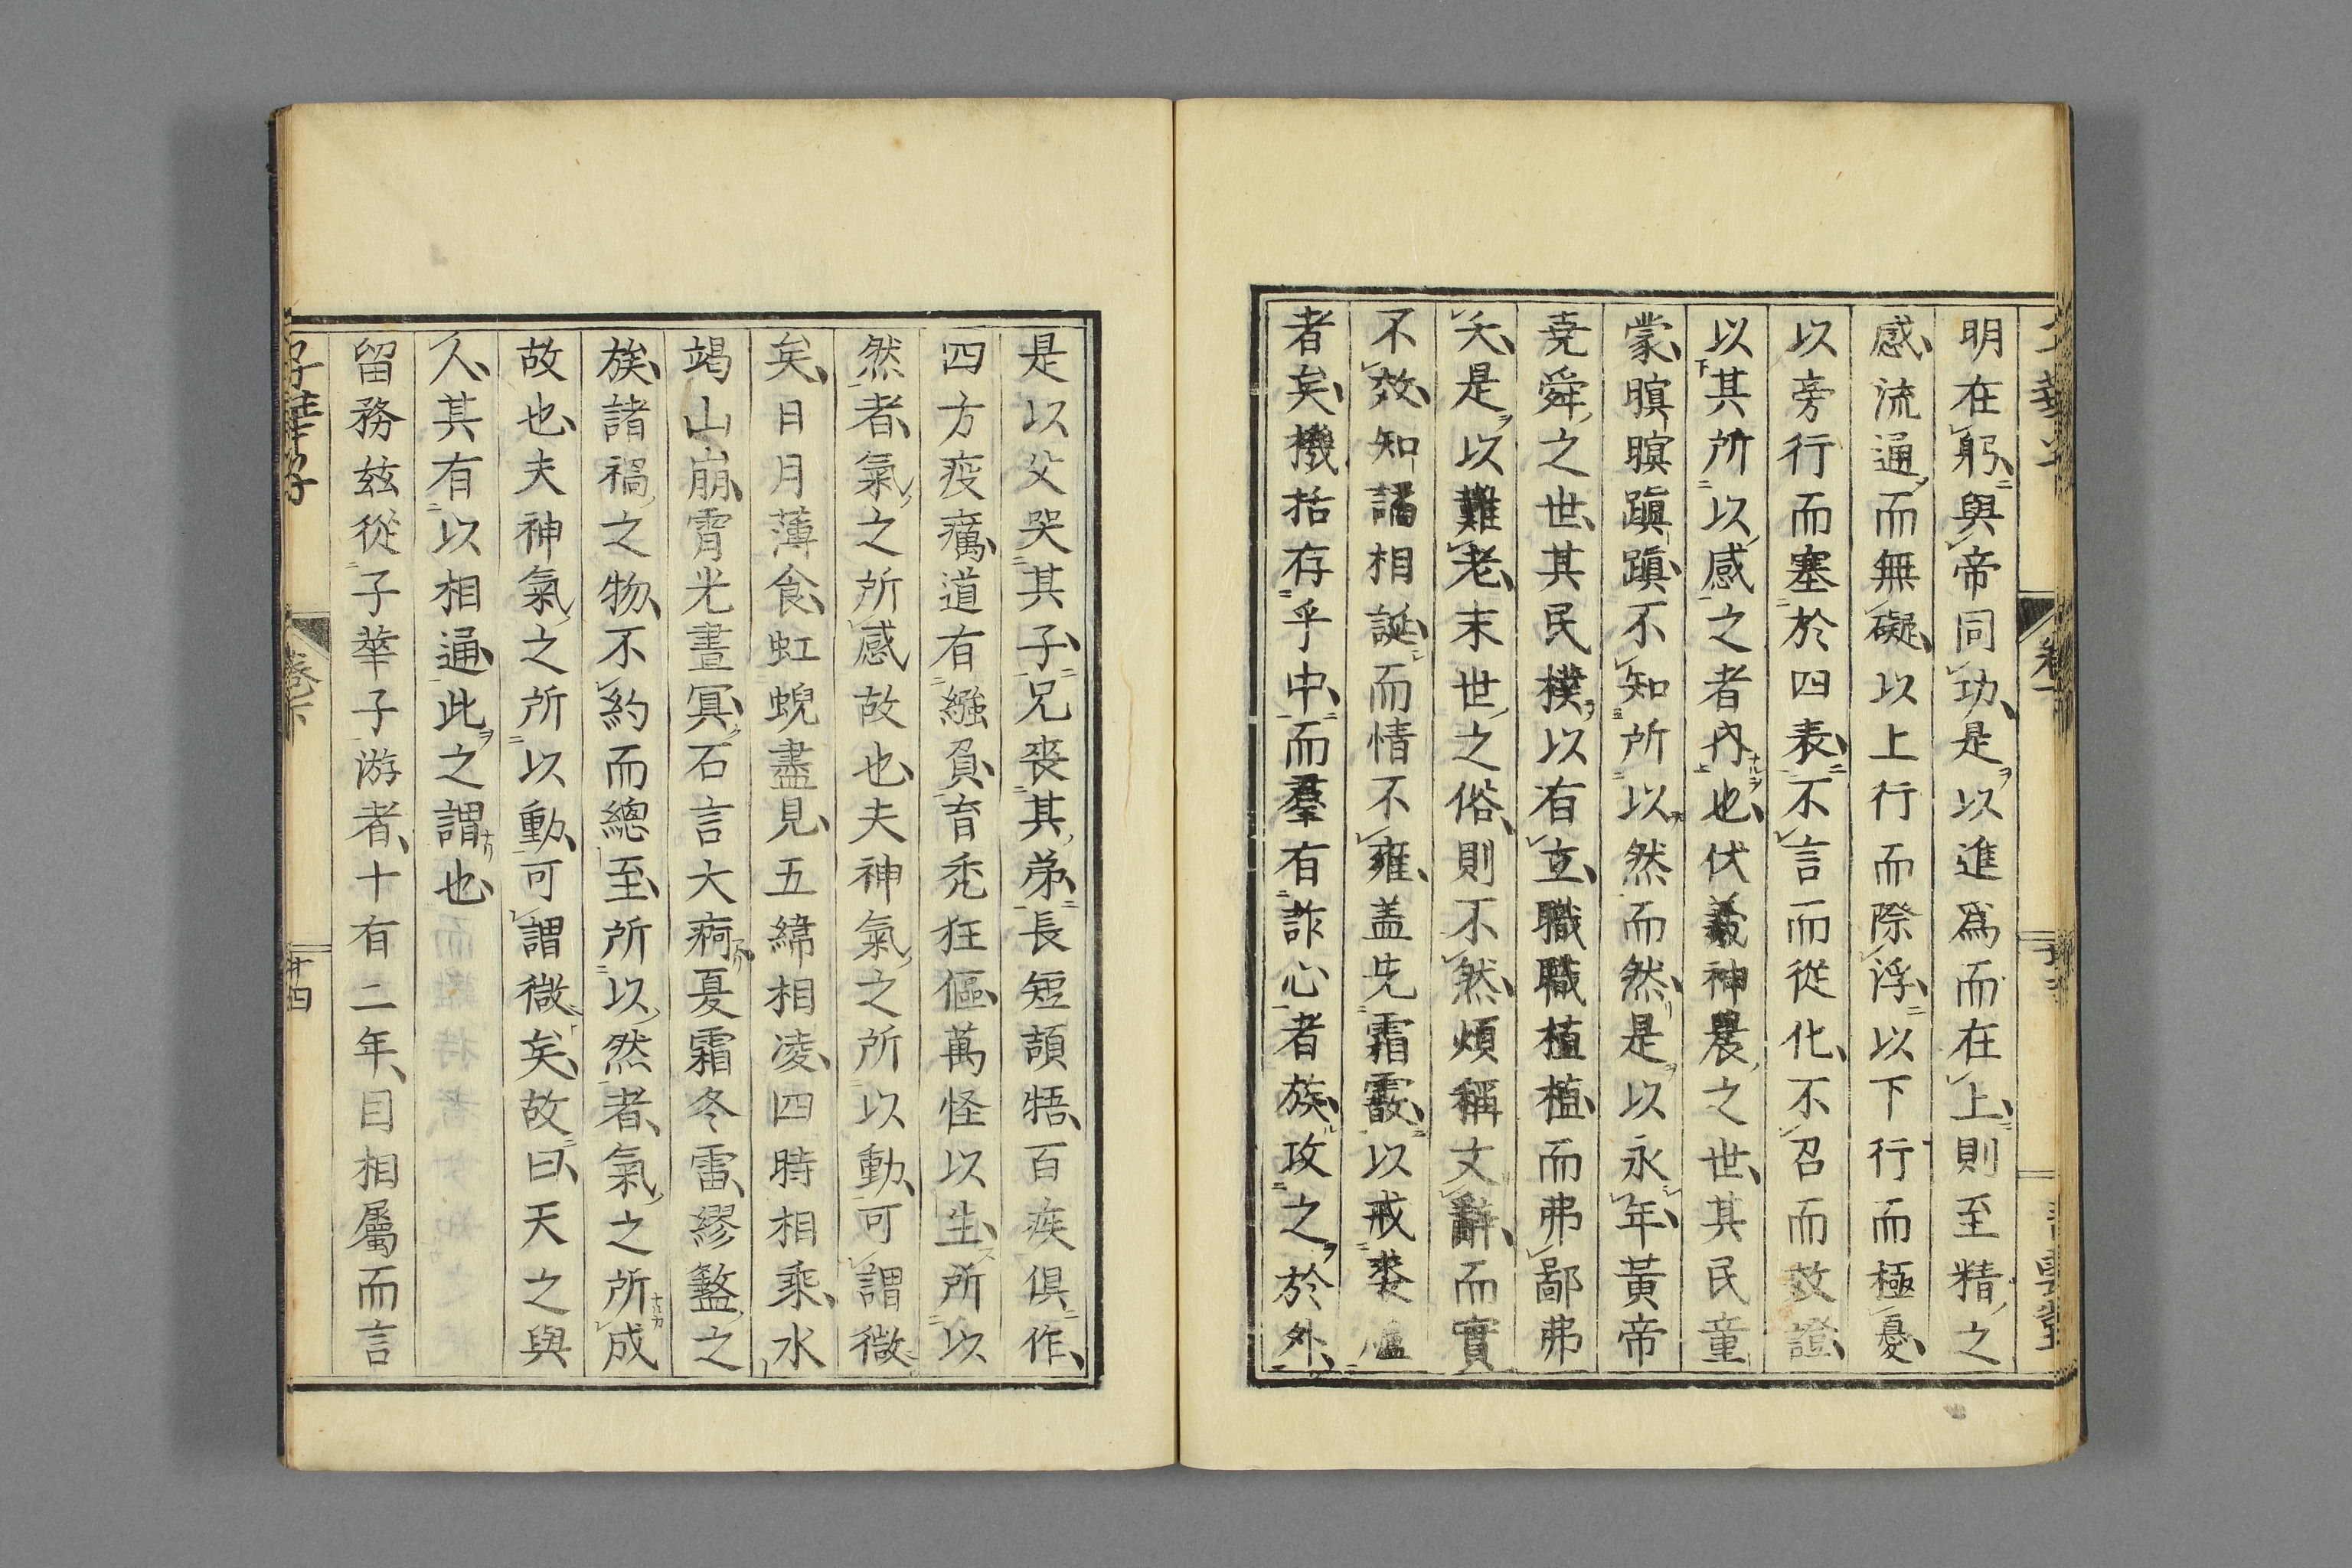 明在躬與帝同功是以進爲而在上則至精之
感流通而無礙以上行而際浮以下行而極憂
以旁行而塞於四表不言而從化不召而效證
以其所以感之者內也伏羲神農之世其民童
蒙瞑瞑蹎蹎不知所以然而然是以永年黃帝
堯舜之世其民樸以有立職職植植而弗鄙弗
夭是以難老末世之俗則不然煩稱文辭而實
不效知譎相誕而情不雍盖先霜霰以戒裘爐
者矣機括存乎中而羣有詐心者族攻之於外
是以父哭其子兄喪其弟長短頡牾百疾俱作
四方疫癘道有繈負盲禿狂傴萬怪以生所以
然者氣之所感故也夫神氣之所以動可謂微
矣日月薄食虹蜺晝見五緯相凌四時相乘水
竭山崩霄光晝冥石言犬痾夏霜冬雷繆盭之
族諸禍之物不約而總至所以然者氣之所成
故也夫神氣之所以動可謂微矣故曰天之與
人其有以相通此之謂也
留務玆從子華子游者十有二年目相屬而言
子華子
卷下
廿四